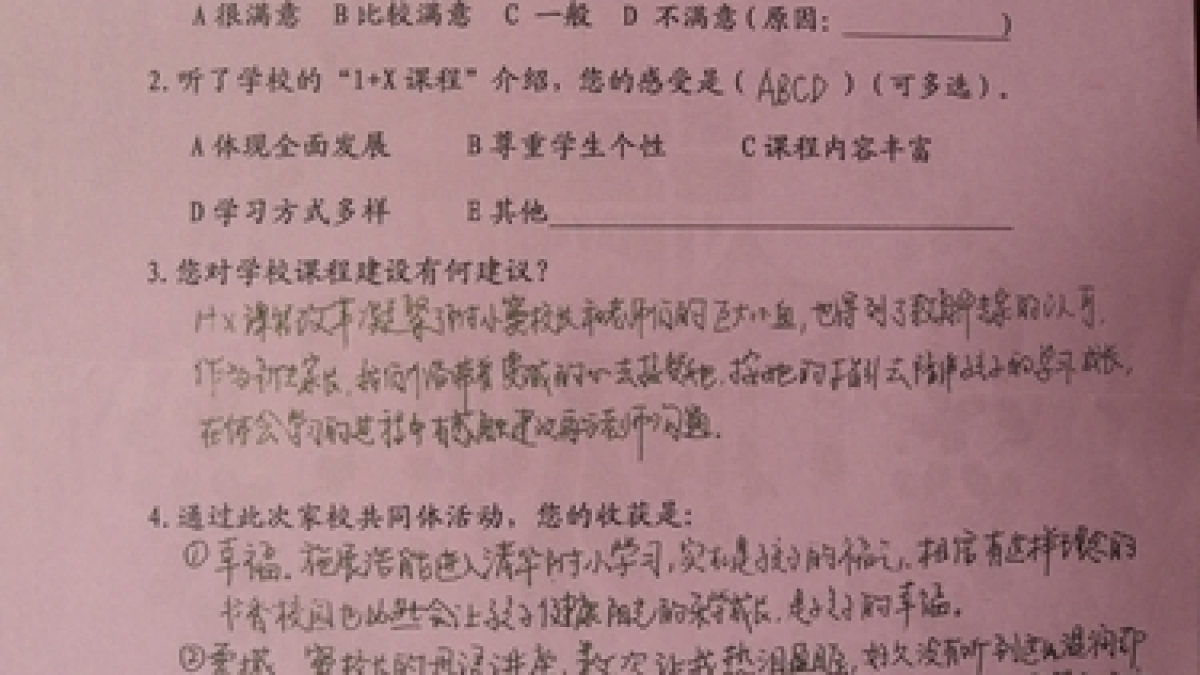 A 很满意 B 比较满意 C 一般 D 不满意(原因: )
2. 听了学校的“1+X 课程”介绍, 您的感受是( ABCD )(可多选).
A 体现全面发展 B 尊重学生个性 C 课程内容丰富
D 学习方式多样 E 其他
3. 您对学校课程建设有何建议?
1+X 课程改革凝聚了附小窦校长和老师们的巨大心血, 也得到了的认可.
作为新生家长, 我们带着的心去, 按她的去陪伴孩子的学习成长,
在体会学习的过程中有建议再与老师沟通.
4. 通过此次家校共同体活动, 您的收获是:
①幸福. 能进入清华附小学习, 实在是孩子的福气, 相信有这样理念的
书香校园也必然会让孩子健康阳光的成长, 是孩子的幸福.
② 窦校长的讲座, 数次让我热泪盈眶, 好久没有听到这么